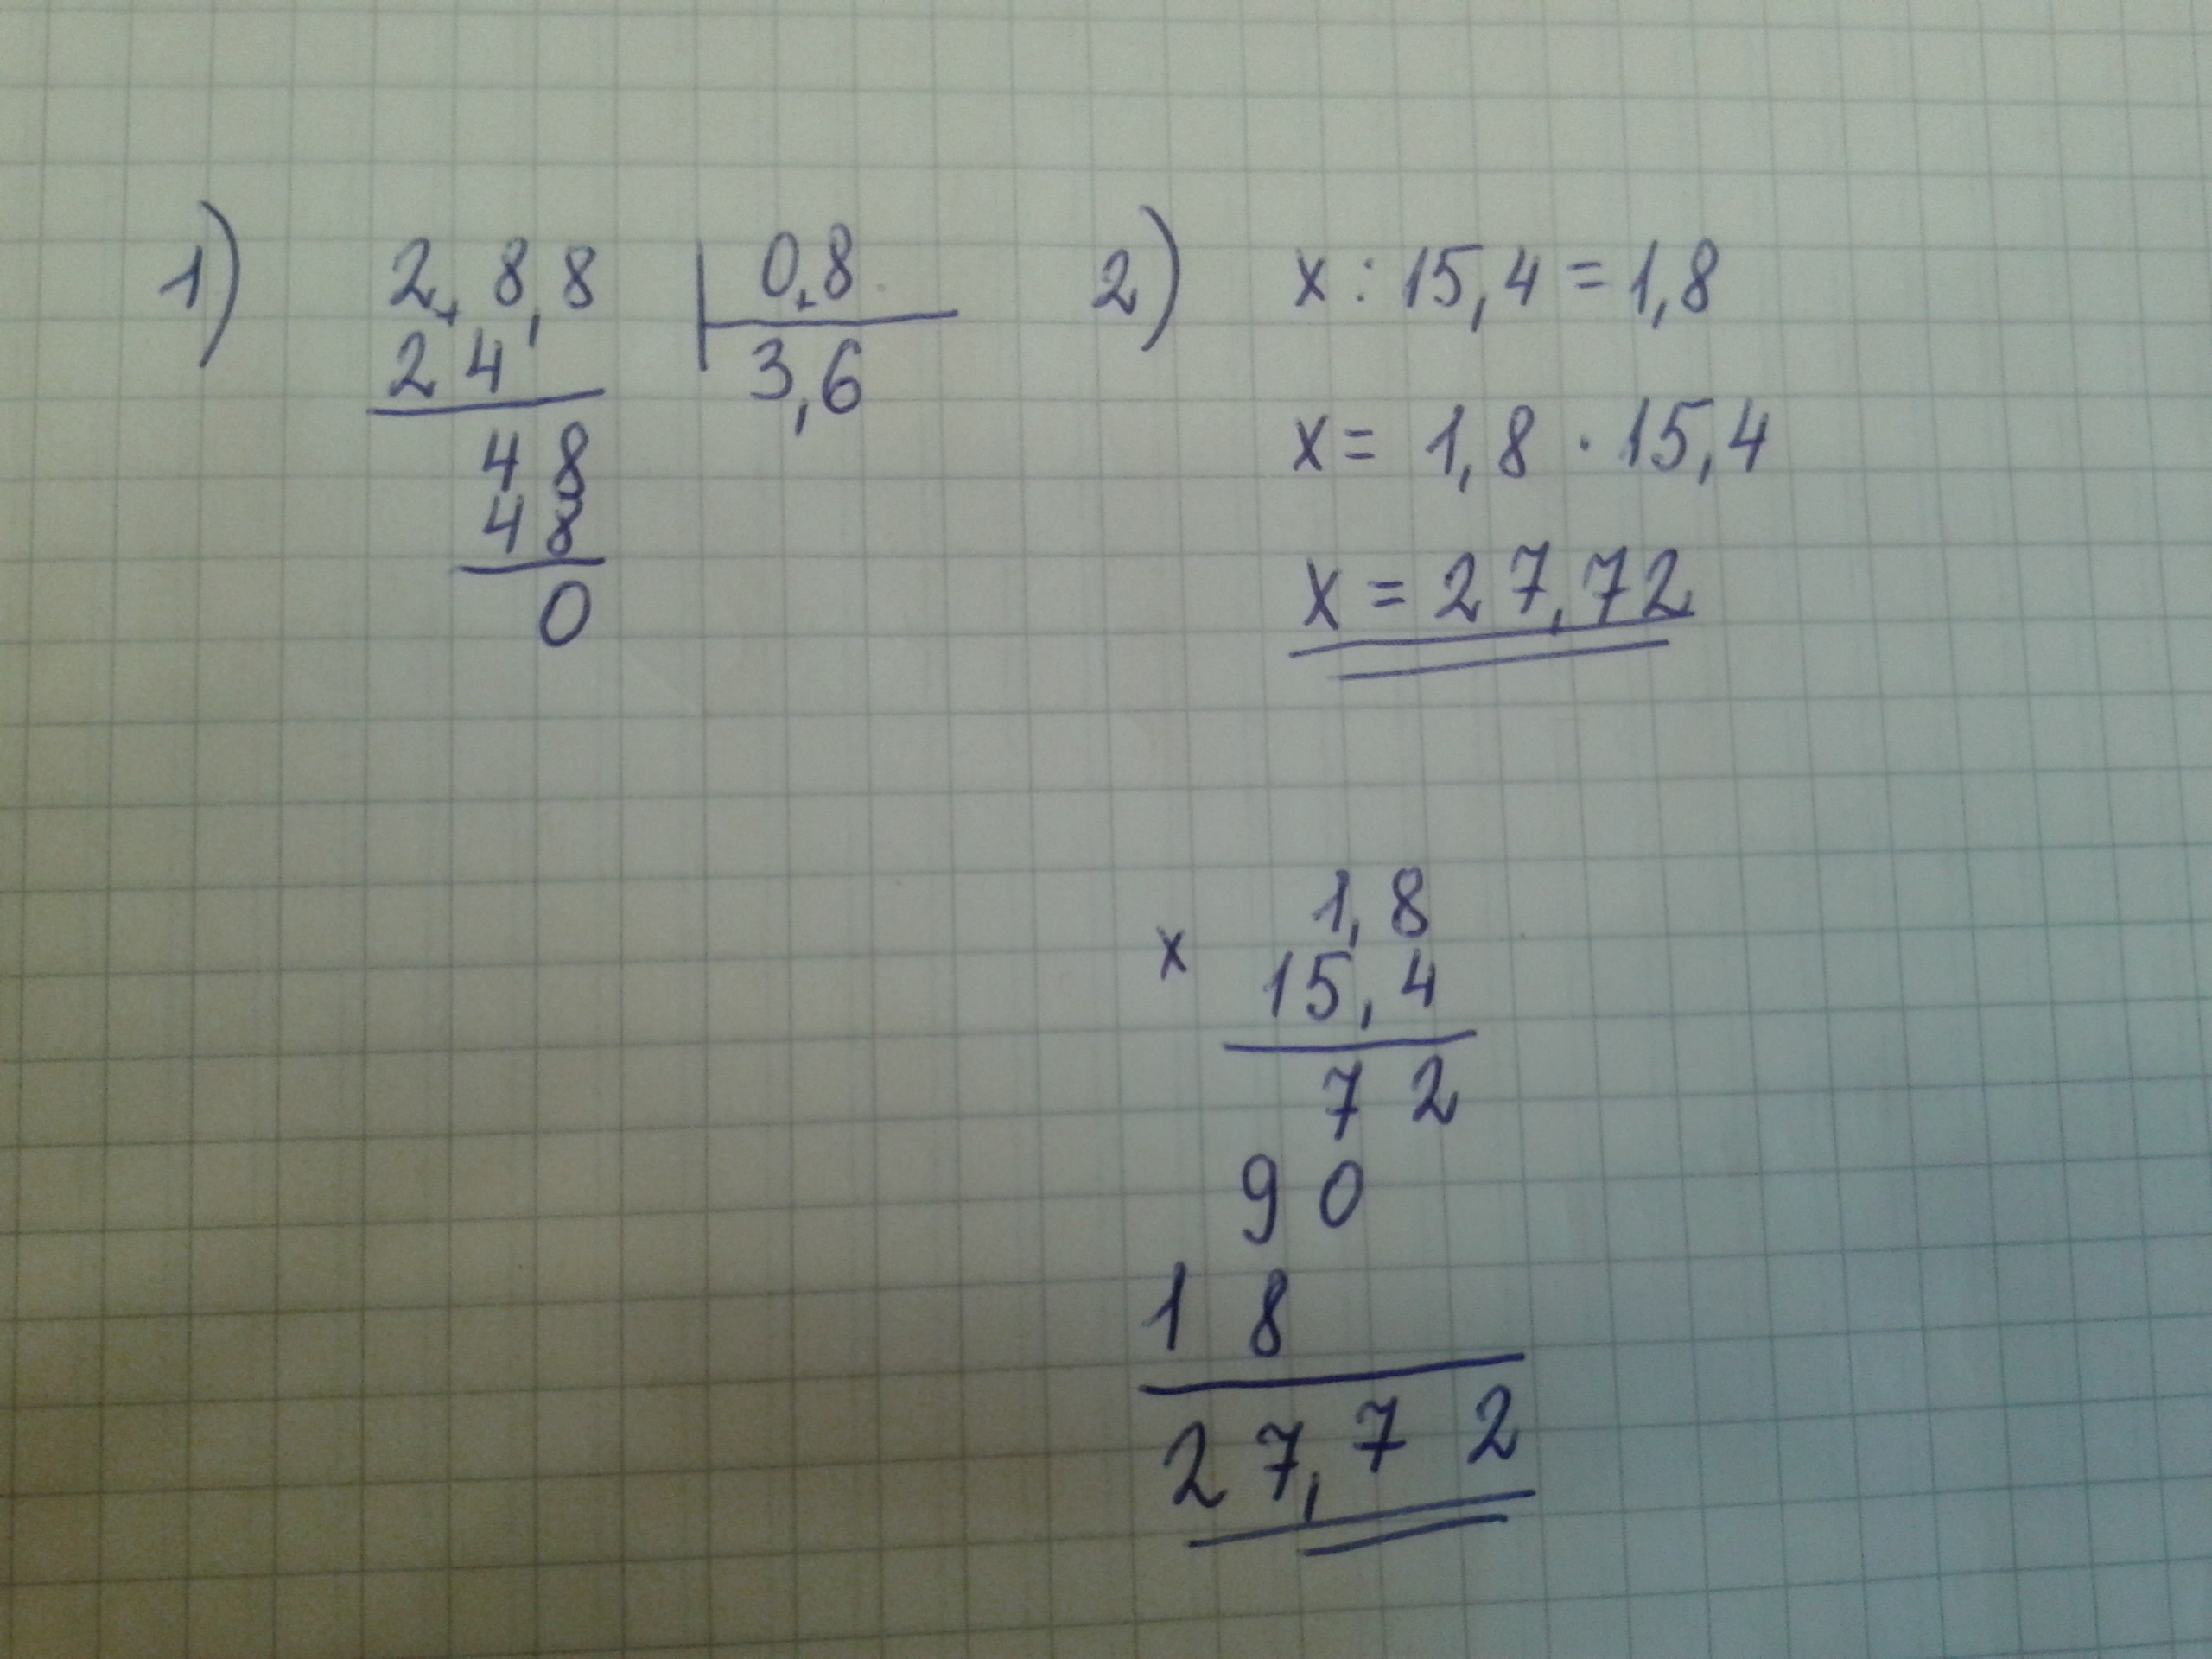 1) 2,8,8 | 0,8
24 | 3,6
48
48
0
2) x : 15,4 = 1,8
x = 1,8 · 15,4
x = 27,72
x 1,8
15,4
7 2
9 0
1 8
27,72